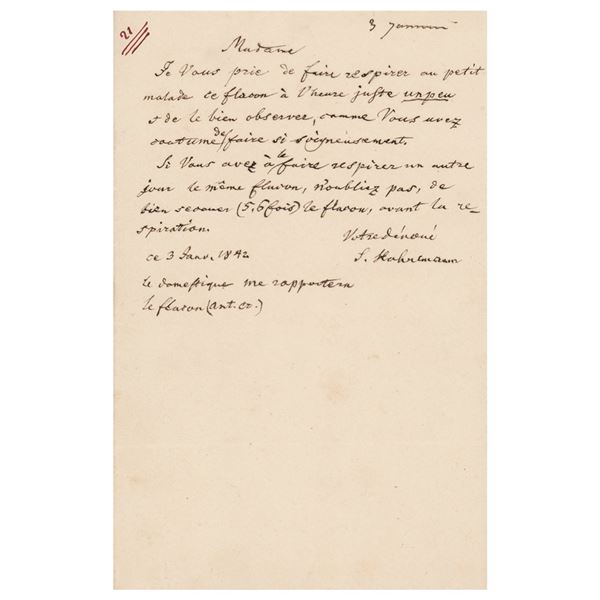 21
3 Janvier
Madame
Je Vous prie de faire respirer au petit
malade ce flacon à l'heure juste un peu
et de le bien observer, comme Vous avez
coutume de faire si soigneusement.
Si Vous avez à le faire respirer un autre
jour le même flacon, n'oubliez pas, de
bien secouer (5, 6 fois) le flacon, avant la re-
spiration.
Votre dévoué
ce 3 Janv. 1842
S. Hahnemann
le domestique me rapportera
le flacon (ant. cr.)